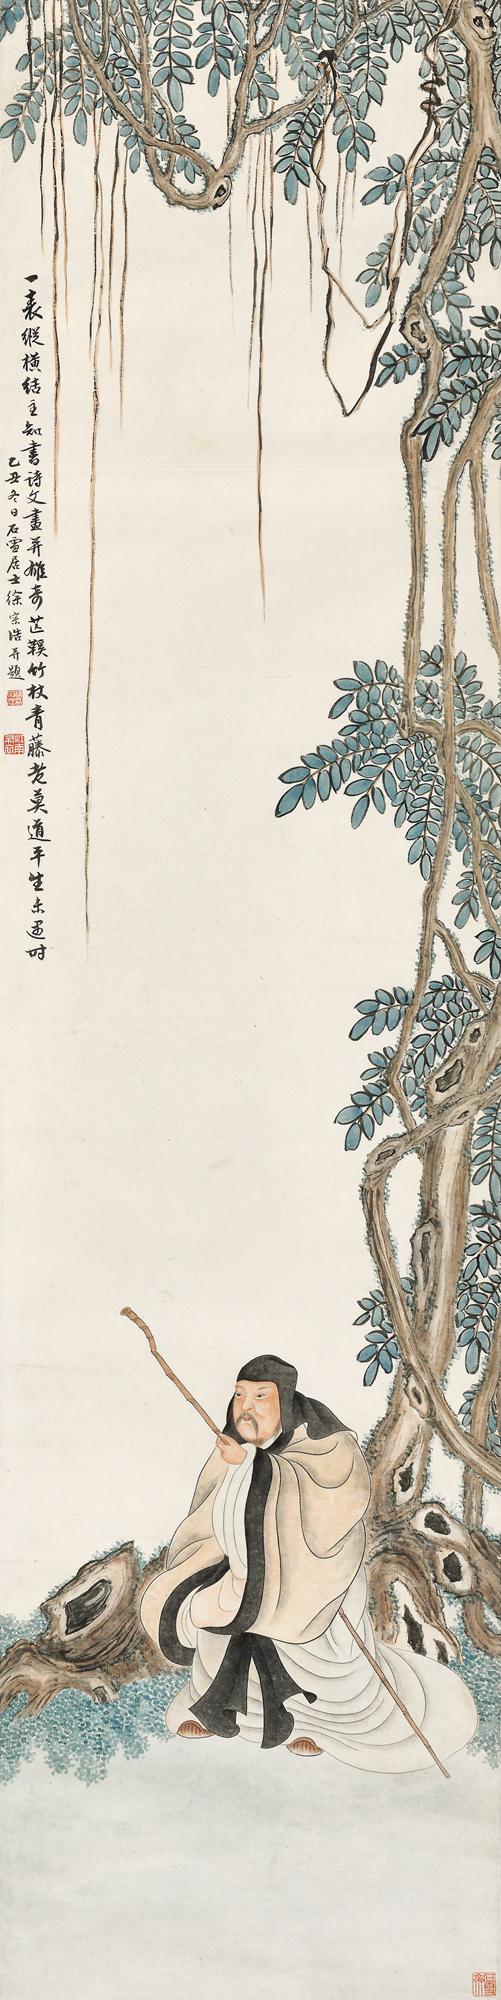 一表縱橫結主知書詩文畫并雄奇芒鞵竹杖青藤老莫道平生未遇時
乙丑冬日石雪居士徐宗浩并題